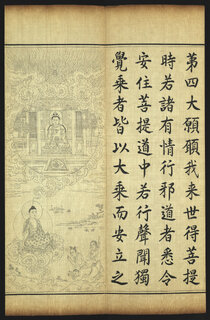 第四大願願我来世得菩提
時若諸有情行邪道者悉令
安住菩提道中若行聲聞獨
覺乘者皆以大乘而安立之